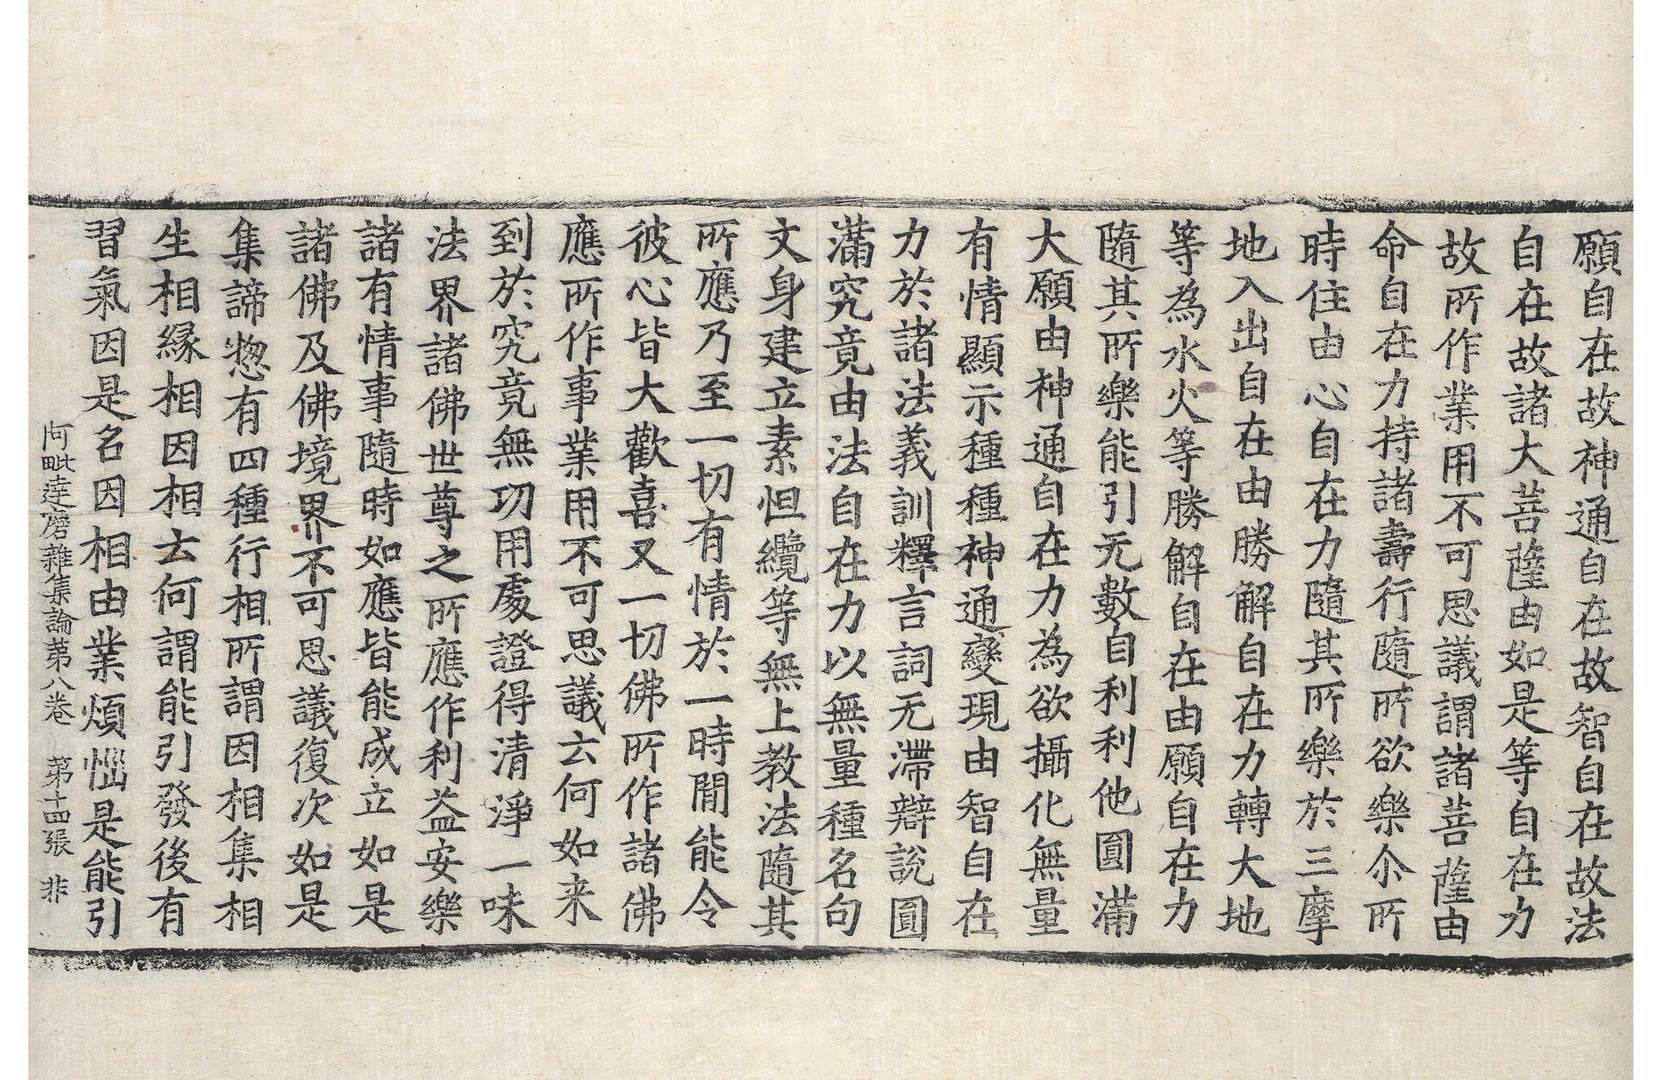 願自在故神通自在故智自在故法
自在故諸大菩薩由如是等自在力
故所作業用不可思議謂諸菩薩由
命自在力持諸壽行隨所欲樂尒所
時住由心自在力隨其所樂於三摩
地入出自在由勝解自在力轉大地
等為水火等勝解自在由願自在力
隨其所樂能引无數自利利他圓滿
大願由神通自在力為欲攝化無量
有情顯示種種神通變現由智自在
力於諸法義訓釋言詞无滯辯說圓
滿究竟由法自在力以無量種名句
文身建立素怛纜等無上教法隨其
所應乃至一切有情於一時閒能令
彼心皆大歡喜又一切佛所作諸佛
應所作事業用不可思議云何如来
到於究竟無功用處證得清淨一味
法界諸佛世尊之所應作利益安樂
諸有情事隨時如應皆能成立如是
諸佛及佛境界不可思議復次如是
集諦惣有四種行相所謂因相集相
生相緣相因相云何謂能引發後有
習氣因是名因相由業煩惱是能引
阿毗達磨雜集論第八卷 第十四張 非